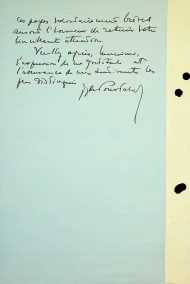 ces pages volontairement brèves
auront l'honneur de retenir votre
bienveillante attention.
Veuillez agréer, Monsieur,
l'expression de ma gratitude et
l'assurance de mes sentiments les
plus distingués